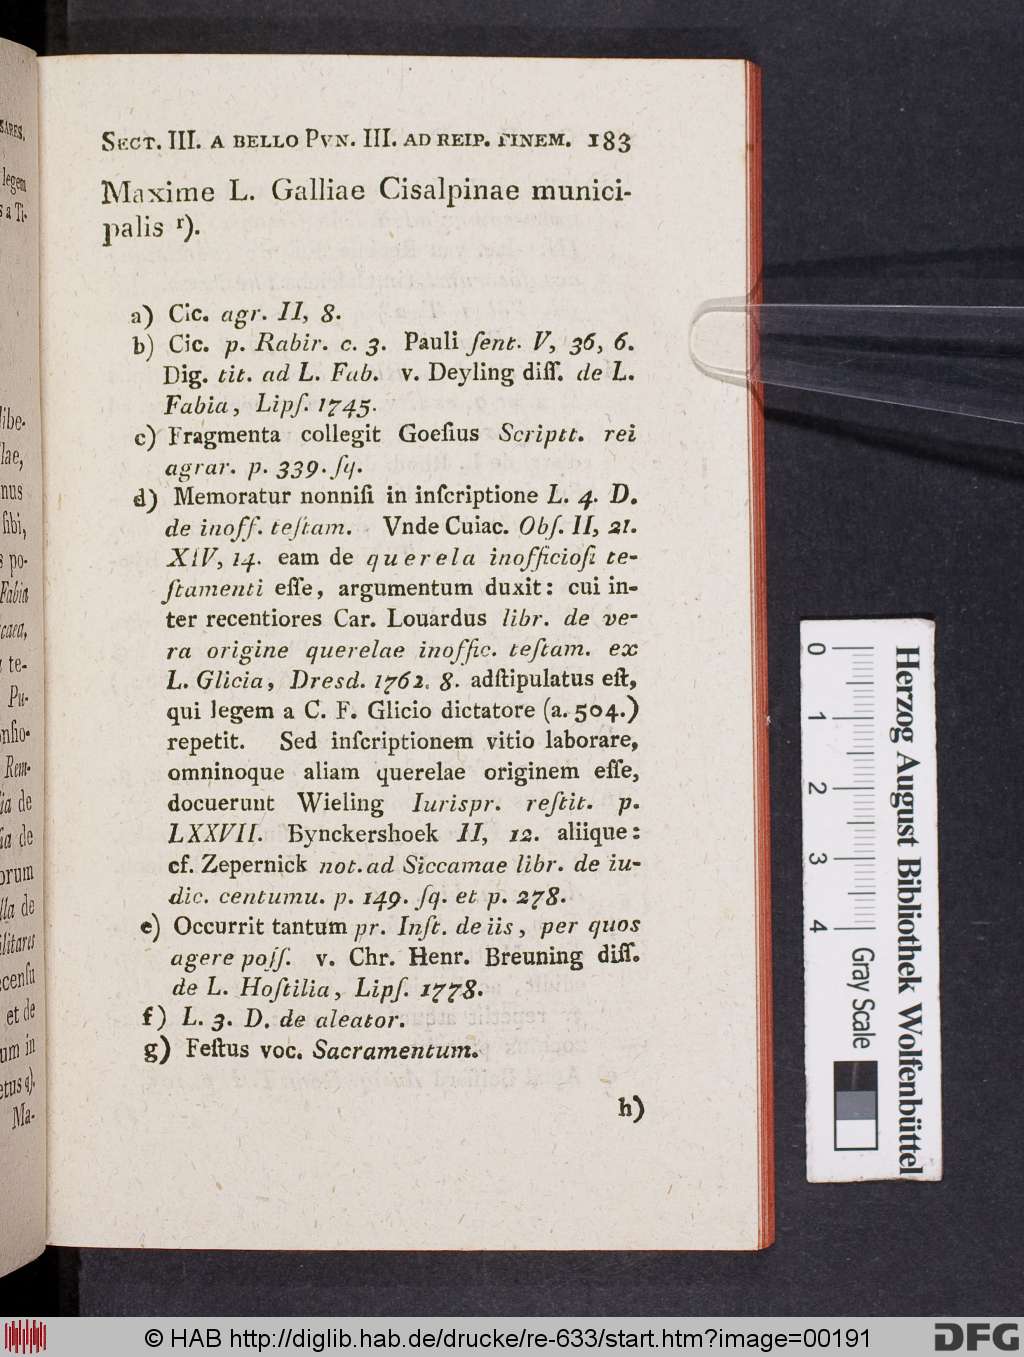 SECT. III. A BELLO PVN. III. AD REIP. FINEM. 183
Maxime L. Galliae Cisalpinae munici-
palis r).
a) Cic. agr. II, 8.
b) Cic. p. Rabir. c. 3. Pauli ſent. V, 36, 6.
Dig. tit. ad L. Fab. v. Deyling diſſ. de L.
Fabia, Lipſ. 1745.
c) Fragmenta collegit Goeſius Scriptt. rei
agrar. p. 339. ſq.
d) Memoratur nonniſi in inſcriptione L. 4. D.
de inoff. teſtam. Vnde Cuiac. Obſ. II, 21.
XIV, 14. eam de querela inofficioſi te-
ſtamenti eſſe, argumentum duxit: cui in-
ter recentiores Car. Louardus libr. de ve-
ra origine querelae inoffic. teſtam. ex
L. Glicia, Dresd. 1762. 8. adſtipulatus eſt,
qui legem a C. F. Glicio dictatore (a. 504.)
repetit. Sed inſcriptionem vitio laborare,
omninoque aliam querelae originem eſſe,
docuerunt Wieling Iurispr. reſtit. p.
LXXVII. Bynckershoek II, 12. aliique:
cf. Zepernick not. ad Siccamae libr. de iu-
dic. centumu. p. 149. ſq. et p. 278.
e) Occurrit tantum pr. Inſt. de iis, per quos
agere poſſ. v. Chr. Henr. Breuning diſſ.
de L. Hoſtilia, Lipſ. 1778.
f) L. 3. D. de aleator.
g) Feſtus voc. Sacramentum.
h)
legem
s a Ti-
libe-
lae,
nus
ſibi,
po-
Fabia
caea,
te-
Pu-
nſio-
Rem-
ia de
ia de
orum
lla de
ilitares
cenſu
et de
um in
etus q).
Ma-
0 1 2 3 4
Gray Scale
Herzog August Bibliothek Wolfenbüttel
© HAB http://diglib.hab.de/drucke/re-633/start.htm?image=00191
DFG